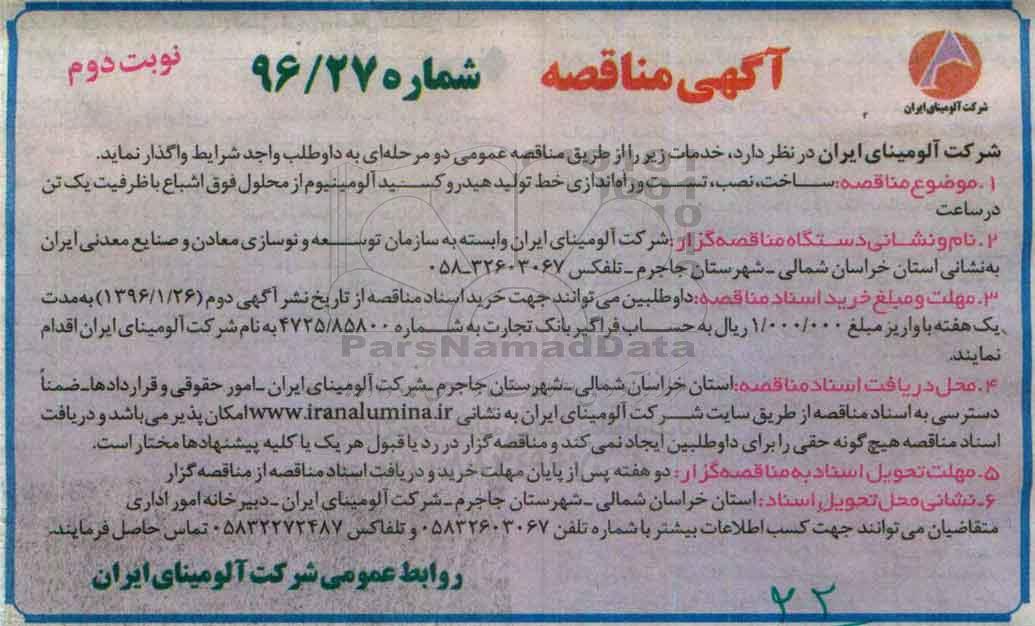 شرکت آلومینای ایران
آگهی مناقصه
شماره ۹۶/۲۷
نوبت دوم
شرکت آلومینای ایران در نظر دارد، خدمات زیر را از طریق مناقصه عمومی دو مرحله‌ای به داوطلب واجد شرایط واگذار نماید.
۱.موضوع مناقصه:ساخت، نصب، تست و راه‌اندازی خط تولید هیدروکسید آلومینیوم از محلول فوق اشباع با ظرفیت یک تن
در ساعت
۲.نام و نشانی دستگاه مناقصه‌گزار:شرکت آلومینای ایران وابسته به سازمان توسعه و نوسازی معادن و صنایع معدنی ایران
به‌نشانی استان خراسان شمالی ـ شهرستان جاجرم ـ تلفکس ۳۲۶۰۳۰۶۷ـ۰۵۸
۳.مهلت و مبلغ خرید اسناد مناقصه:داوطلبین می‌توانند جهت خرید اسناد مناقصه از تاریخ نشر آگهی دوم (۱۳۹۶/۱/۲۶) به‌مدت
یک هفته با واریز مبلغ ۱/۰۰۰/۰۰۰ ریال به حساب فراگیر بانک تجارت به شماره ۴۷۲۵/۸۵۸۰۰ به نام شرکت آلومینای ایران اقدام
نمایند.
ParsNamadData
۴.محل دریافت اسناد مناقصه:استان خراسان شمالی ـ شهرستان جاجرم ـ شرکت آلومینای ایران ـ امور حقوقی و قراردادها ـ ضمناً
دسترسی به اسناد مناقصه از طریق سایت شرکت آلومینای ایران به نشانی www.iranalumina.ir امکان پذیر می‌باشد و دریافت
اسناد مناقصه هیچ گونه حقی را برای داوطلبین ایجاد نمی‌کند و مناقصه گزار در رد یا قبول هر یک یا کلیه پیشنهادها مختار است.
۵.مهلت تحویل اسناد به مناقصه‌گزار: دو هفته پس از پایان مهلت خرید و دریافت اسناد مناقصه از مناقصه گزار
۶.نشانی محل تحویل اسناد: استان خراسان شمالی ـ شهرستان جاجرم ـ شرکت آلومینای ایران ـ دبیرخانه امور اداری
متقاضیان می‌توانند جهت کسب اطلاعات بیشتر با شماره تلفن ۰۵۸۳۲۶۰۳۰۶۷ و تلفاکس ۰۵۸۳۲۲۷۲۴۸۷ تماس حاصل فرمایند.
روابط عمومی شرکت آلومینای ایران
۲۲